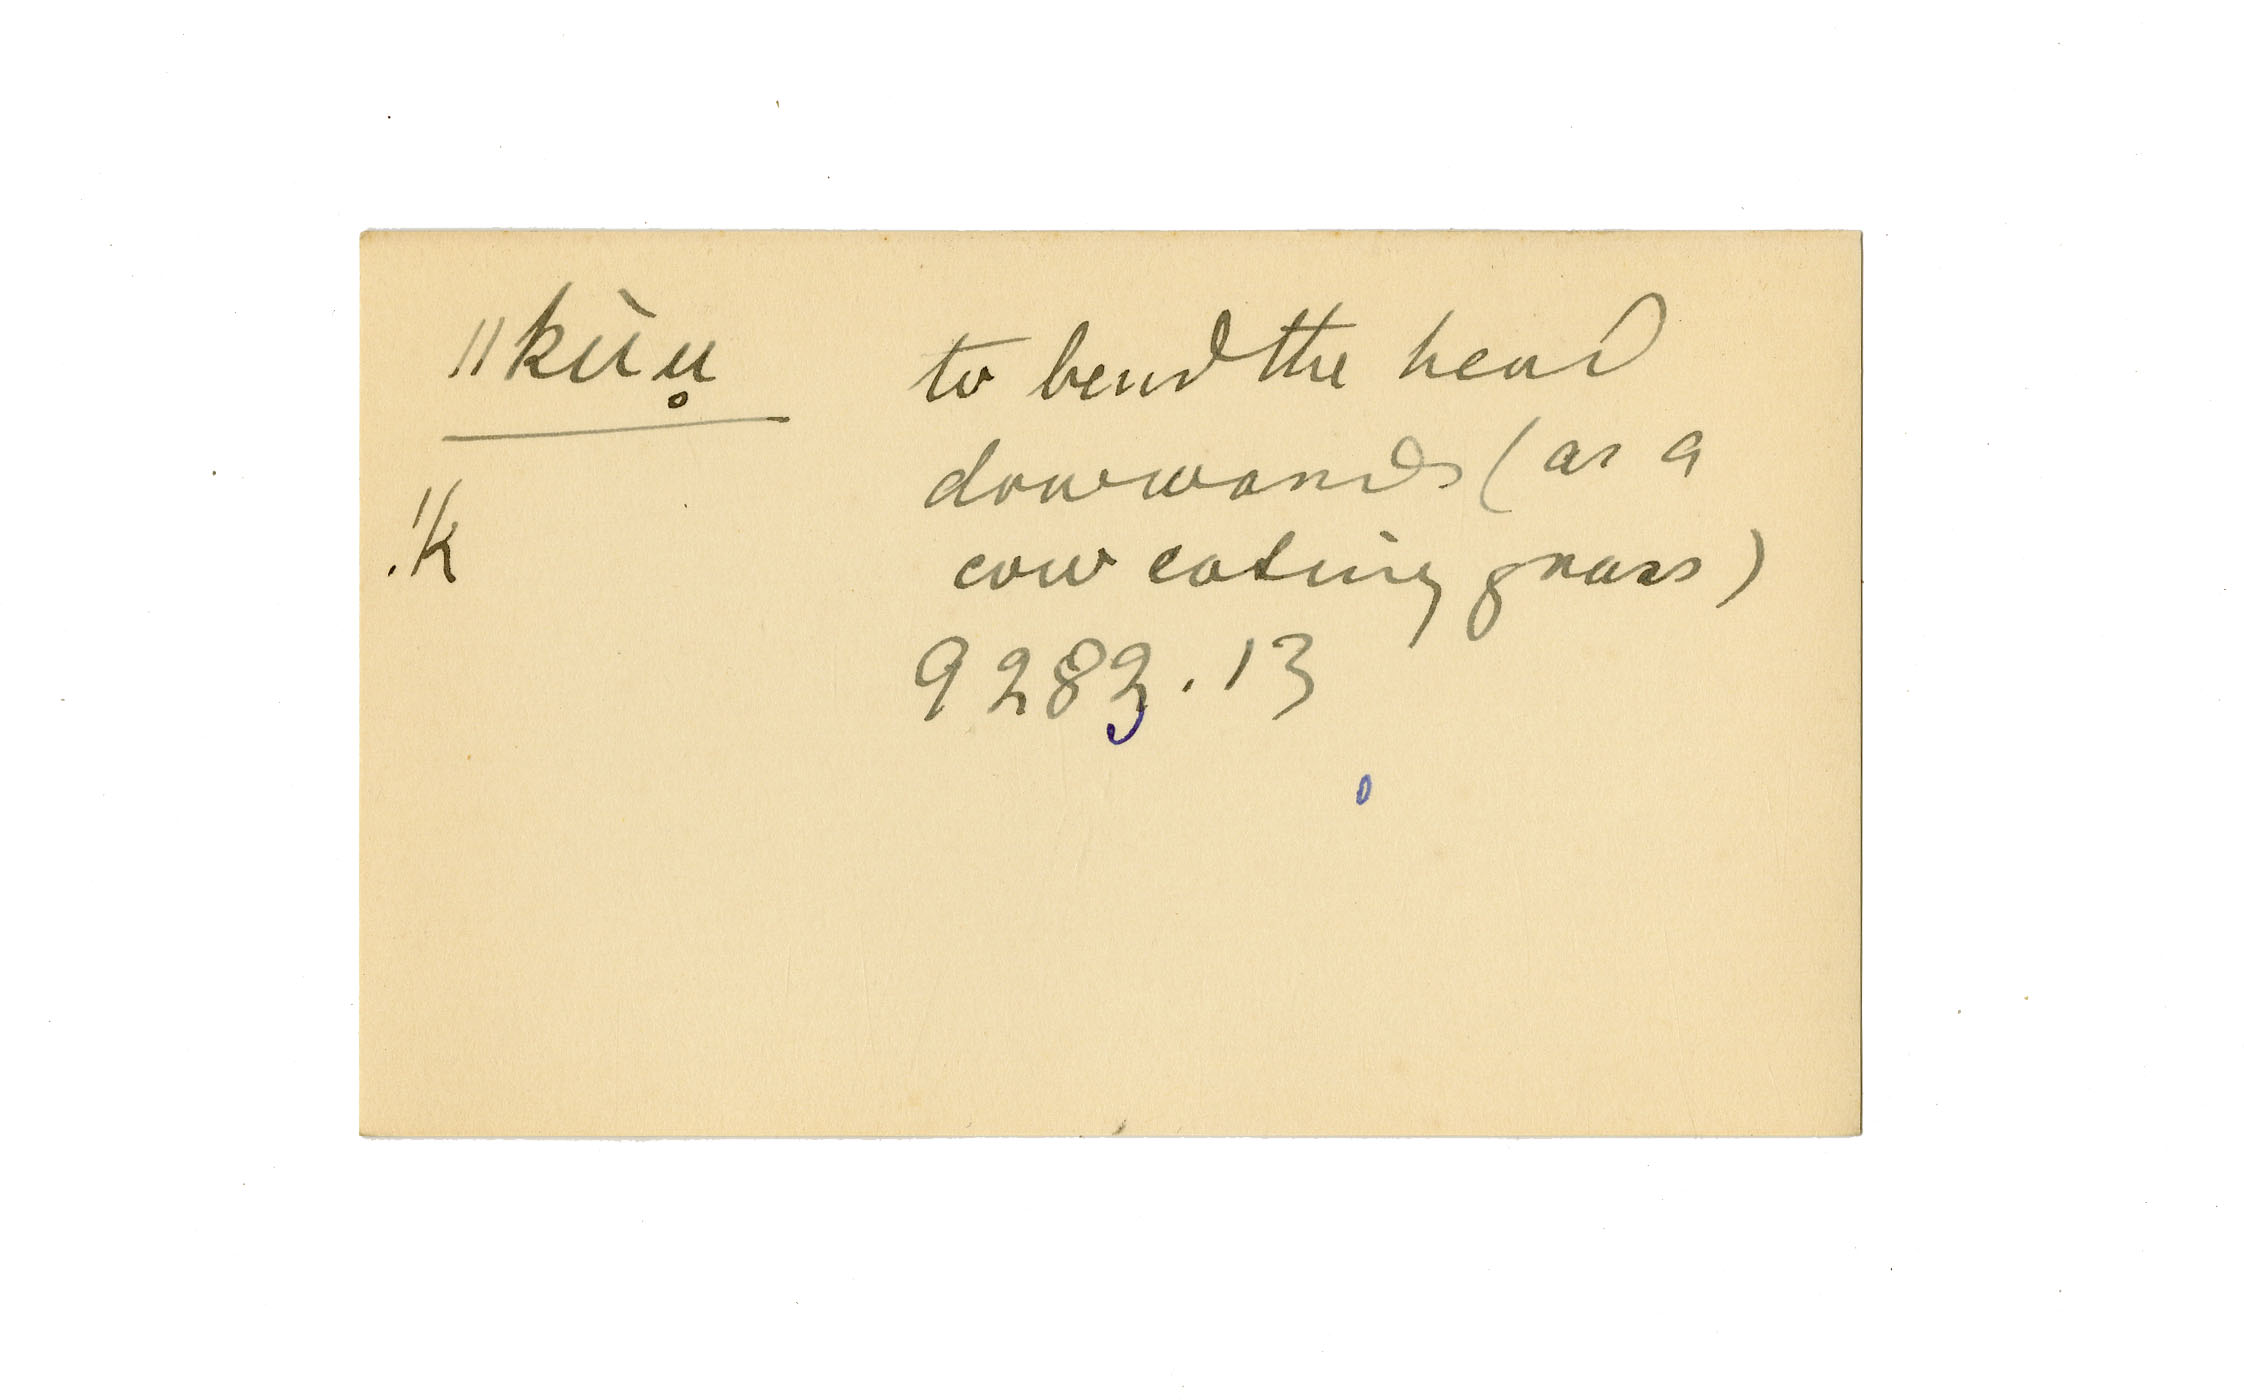 ǁkùu̥ to bend the head
downwards (as a
ǁk cow eating grass)
9283.13